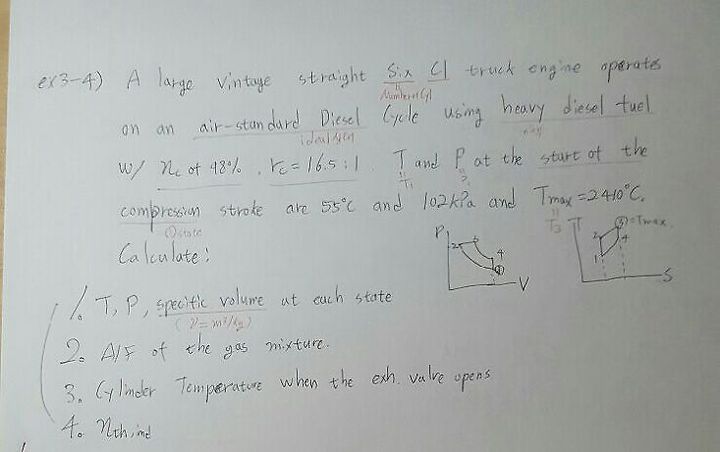 ex3-4) A large vintage straight Six Cyl truck engine operates
Number Cyl
on an air-standard Diesel Cycle using heavy diesel fuel
ideal
w/ ηc of 98%. rc = 16.5:1 T and P at the start of the
T1
compression stroke are 55°C and 102kPa and Tmax = 2410°C.
① state
T3
Calculate:
P 2 3 4 ① V
T 2 ③=Tmax 4 1 S
1. T, P, specific volume at each state
(v = m³/kg)
2. A/F of the gas mixture.
3. Cylinder Temperature when the exh. valve opens
4. ηth,ind